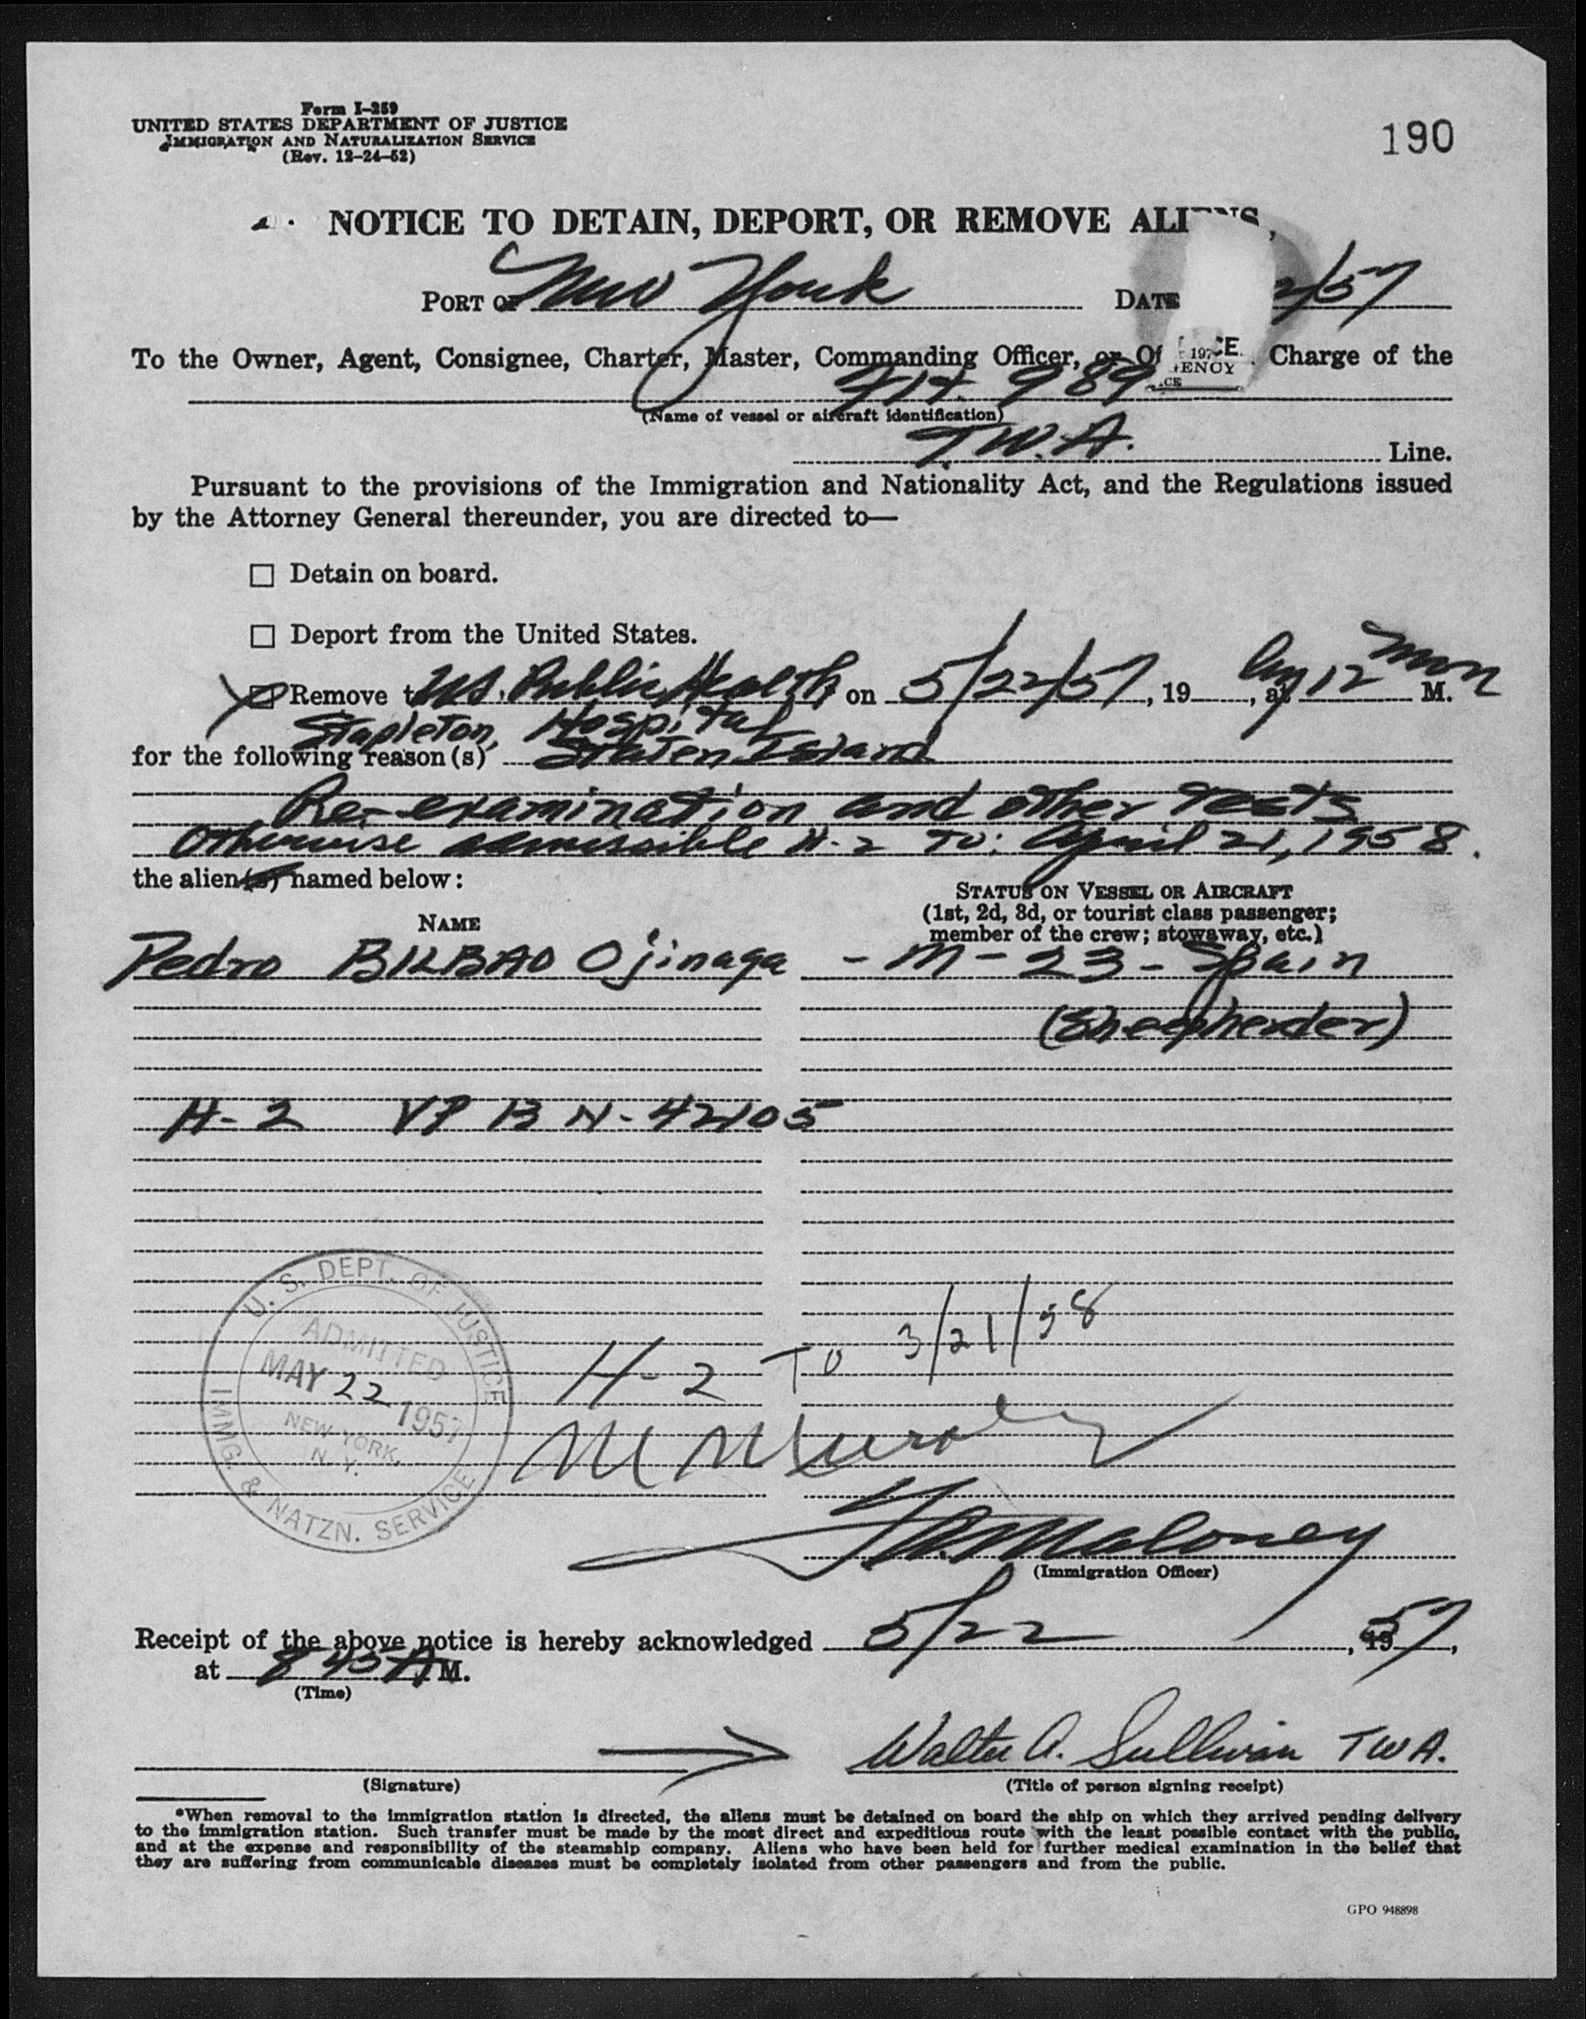 Form I-259
UNITED STATES DEPARTMENT OF JUSTICE
IMMIGRATION AND NATURALIZATION SERVICE
(Rev. 12-24-52)
190
NOTICE TO DETAIN, DEPORT, OR REMOVE ALIENS,
PORT OF New York DATE 2/57
To the Owner, Agent, Consignee, Charter, Master, Commanding Officer, or Of Charge of the
Flt. 989
(Name of vessel or aircraft identification)
T.W.A. Line.
Pursuant to the provisions of the Immigration and Nationality Act, and the Regulations issued
by the Attorney General thereunder, you are directed to—
☐ Detain on board.
☐ Deport from the United States.
☒ Remove to U.S. Public Health on 5/22/57, 19, at by 12 noon M.
Stapleton, Hospital
for the following reason(s) Staten Island
Re-examination and other Tests
Otherwise admissible H-2 To: April 21, 1958.
the alien(s) named below:
NAME
STATUS ON VESSEL OR AIRCRAFT
(1st, 2d, 3d, or tourist class passenger;
member of the crew; stowaway, etc.)
Pedro BILBAO Ojinaga - M - 23 - Spain
(Sheepherder)
H-2 VP B N-42105
U. S. DEPT. OF JUSTICE
ADMITTED
MAY 22 1957
NEW YORK,
N. Y.
IMMG. & NATZN. SERVICE
H-2 TO 3/21/58
Maloney
(Immigration Officer)
Receipt of the above notice is hereby acknowledged 5/22, 1957,
at 8 45 A M.
(Time)
Walter A. Sullivan TWA.
(Signature)
(Title of person signing receipt)
*When removal to the immigration station is directed, the aliens must be detained on board the ship on which they arrived pending delivery
to the immigration station. Such transfer must be made by the most direct and expeditious route with the least possible contact with the public,
and at the expense and responsibility of the steamship company. Aliens who have been held for further medical examination in the belief that
they are suffering from communicable diseases must be completely isolated from other passengers and from the public.
GPO 948898